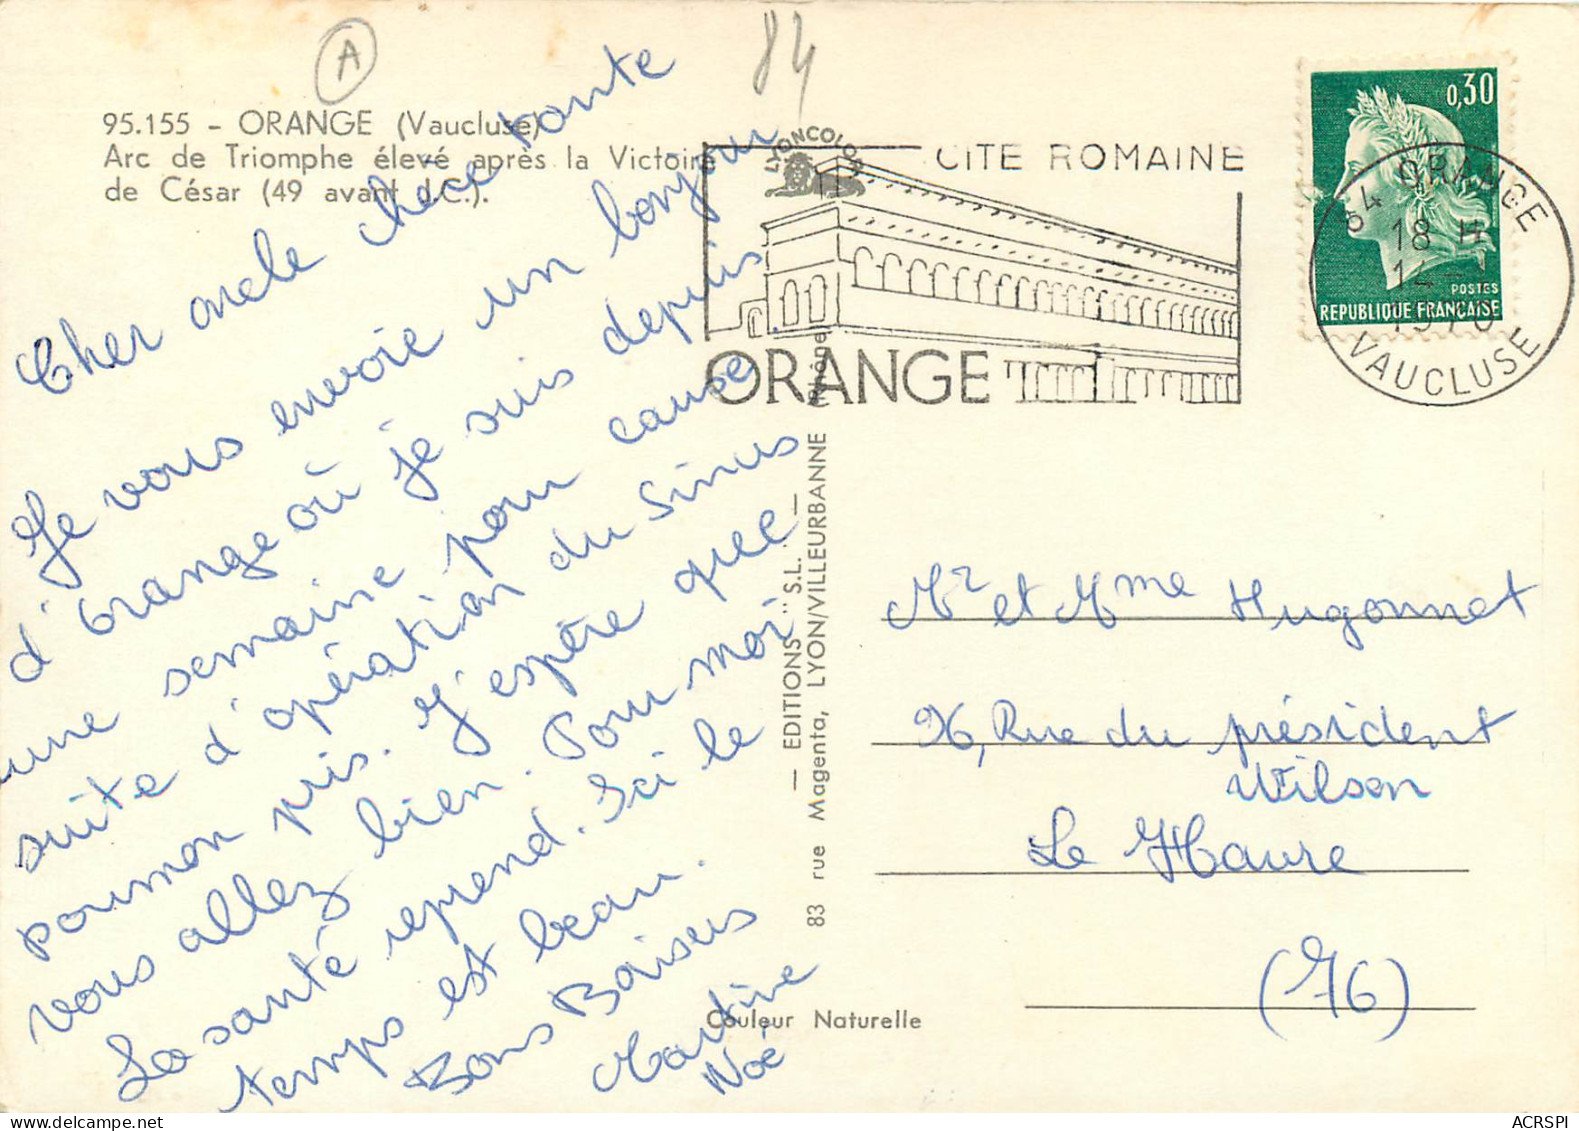 A
84
95.155 - ORANGE (Vaucluse)
Arc de Triomphe élevé après la Victoire
de César (49 avant J.C.).
Cher oncle chère tante
Je vous envoie un bonjour
d'Orange où je suis depuis
une semaine pour cause
suite d'opération du Sinus
poumon pris. J'espère que
vous allez bien. Pour moi
La santé reprend. Ici le
temps est beau.
Bons Baisers
Martine
Noé
LYONCOLOR
CITE ROMAINE
ORANGE
0,30
POSTES
REPUBLIQUE FRANÇAISE
84 ORANGE
18 H
1970
VAUCLUSE
— EDITIONS "S.L." —
83 rue Magenta, LYON/VILLEURBANNE (Rhône)
Couleur Naturelle
Mr et Mme Hugonnet
96, Rue du président
Wilson
Le Havre
(76)
ACRSPI